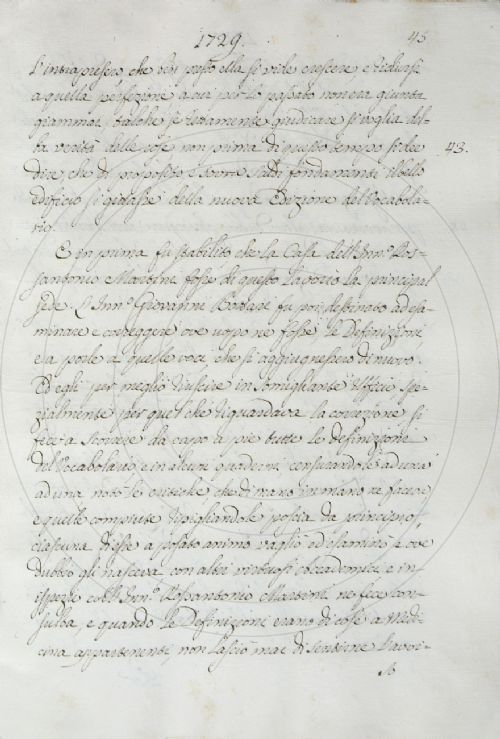 1729.
45
l'intrapresero, che ben presto ella si vide crescere, e ridursi
a quella perfezione a cui per lo passato non era giunta
giammai, talché se rettamente giudicare si voglia del-
la verità delle cose non prima di questo tempo si dee
43.
dire, che di proposito e sovra saldi fondamenti il bello
edificio si gittasse della nuova Edizione del Vocabola-
rio.
E in prima fu stabilito che la Casa dell'Inn.º Ros-
santonio Martini fosse di questo lavorio la principal
sede. L'Inn.º Giovanni Bottari fu poi destinato ad esa-
minare e correggere ove uopo ne fosse le Definizioni
e a porle a quelle voci che si aggiugnessero di nuovo.
Ed egli per meglio riuscire in somigliante Uffizio spe-
zialmente per quel che riguardava la correzione si
fece a scorrere da capo a piè tutte le definizioni
del Vocabolario, e in alcuni quaderni censurandole ad una
ad una notò le critiche che di mano in mano ne faceva
e quelle compiute ripigliandole poscia da principio,
ciascuna d'esse a posato animo vagliò ed esaminò, e ove
dubbio gli nasceva con altri virtuosi Accademici e in
ispezie coll'Inn.º Rossantonio Martini ne fece con-
sulta, e quando le Definizioni erano di cose a Medi-
cina appartenenti, non lasciò mai di sentirne l'avvi-
so